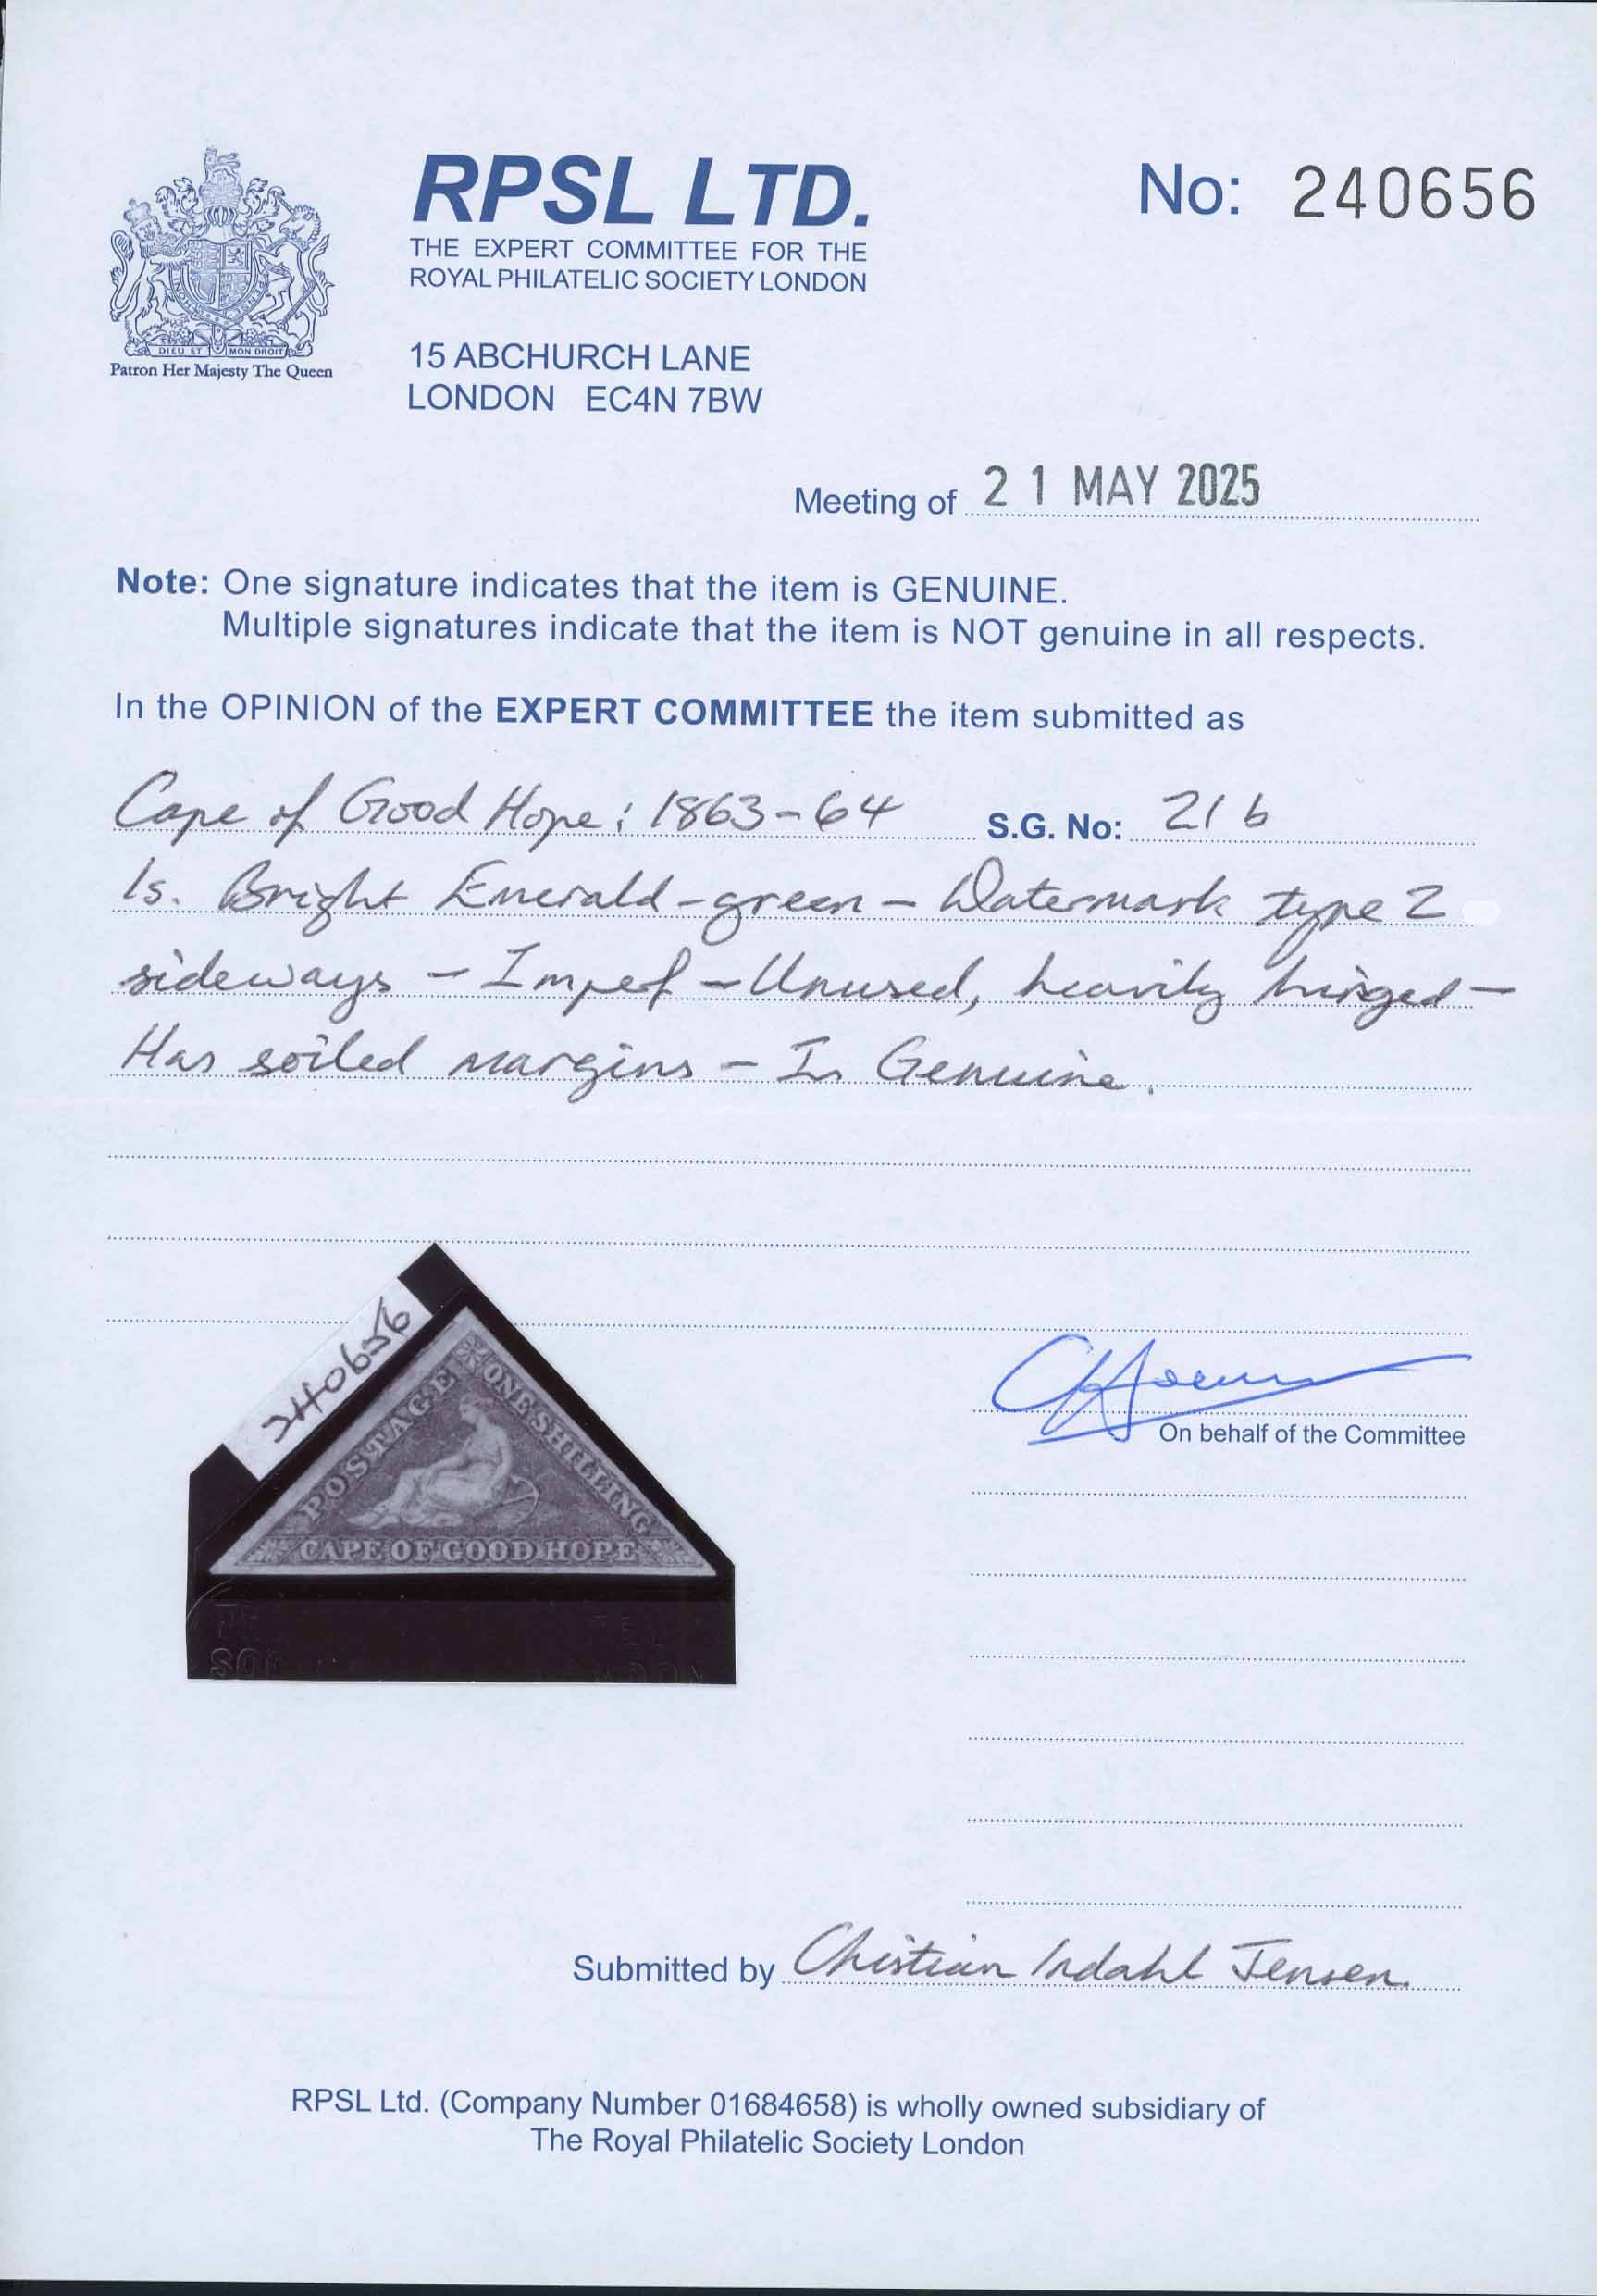 RPSL LTD.
THE EXPERT COMMITTEE FOR THE
ROYAL PHILATELIC SOCIETY LONDON
No: 240656
DIEU ET MON DROIT
Patron Her Majesty The Queen
15 ABCHURCH LANE
LONDON EC4N 7BW
Meeting of 21 MAY 2025
Note: One signature indicates that the item is GENUINE.
Multiple signatures indicate that the item is NOT genuine in all respects.
In the OPINION of the EXPERT COMMITTEE the item submitted as
Cape of Good Hope: 1863-64 S.G. No: 21b
1s. Bright Emerald-green - Watermark type 2
sideways - Imperf - Unused, heavily hinged -
Has soiled margins - Is Genuine.
240656
POSTAGE
ONE SHILLING
CAPE OF GOOD HOPE
On behalf of the Committee
Submitted by Christian Indahl Jensen
RPSL Ltd. (Company Number 01684658) is wholly owned subsidiary of
The Royal Philatelic Society London